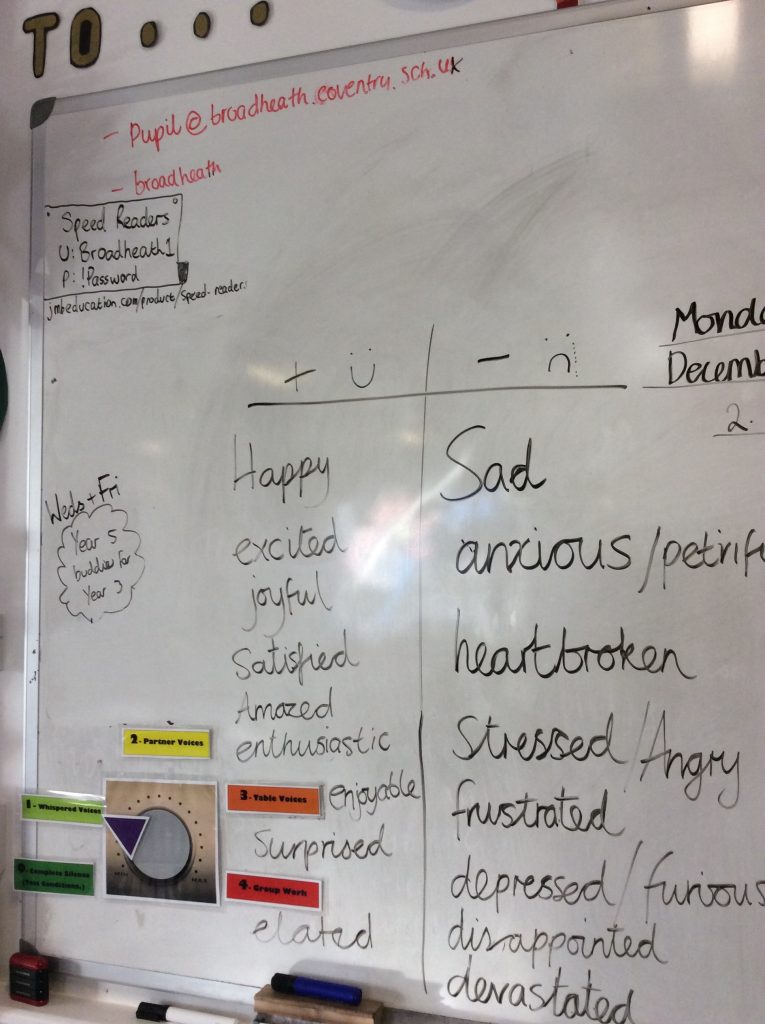 TO...
- Pupil@broadheath.coventry.sch.uk
- broadheath
Speed Readers
U: Broadheath1
P: !Password
jmbeducation.com/product/speed-reader
Monda
Decemb
2.
+ -
Happy
excited
joyful
Satisfied
Amazed
enthusiastic
enjoyable
Surprised
elated
Sad
anxious/petrif
heartbroken
Stressed/Angry
frustrated
depressed/furious
disappointed
devastated
Weds + Fri
Year 5
buddies for
Year 3
2- Partner Voices
1- Whispered Voices
3- Table Voices
0- Complete Silence
(Test Conditions.)
4- Group Work
MIN MAX